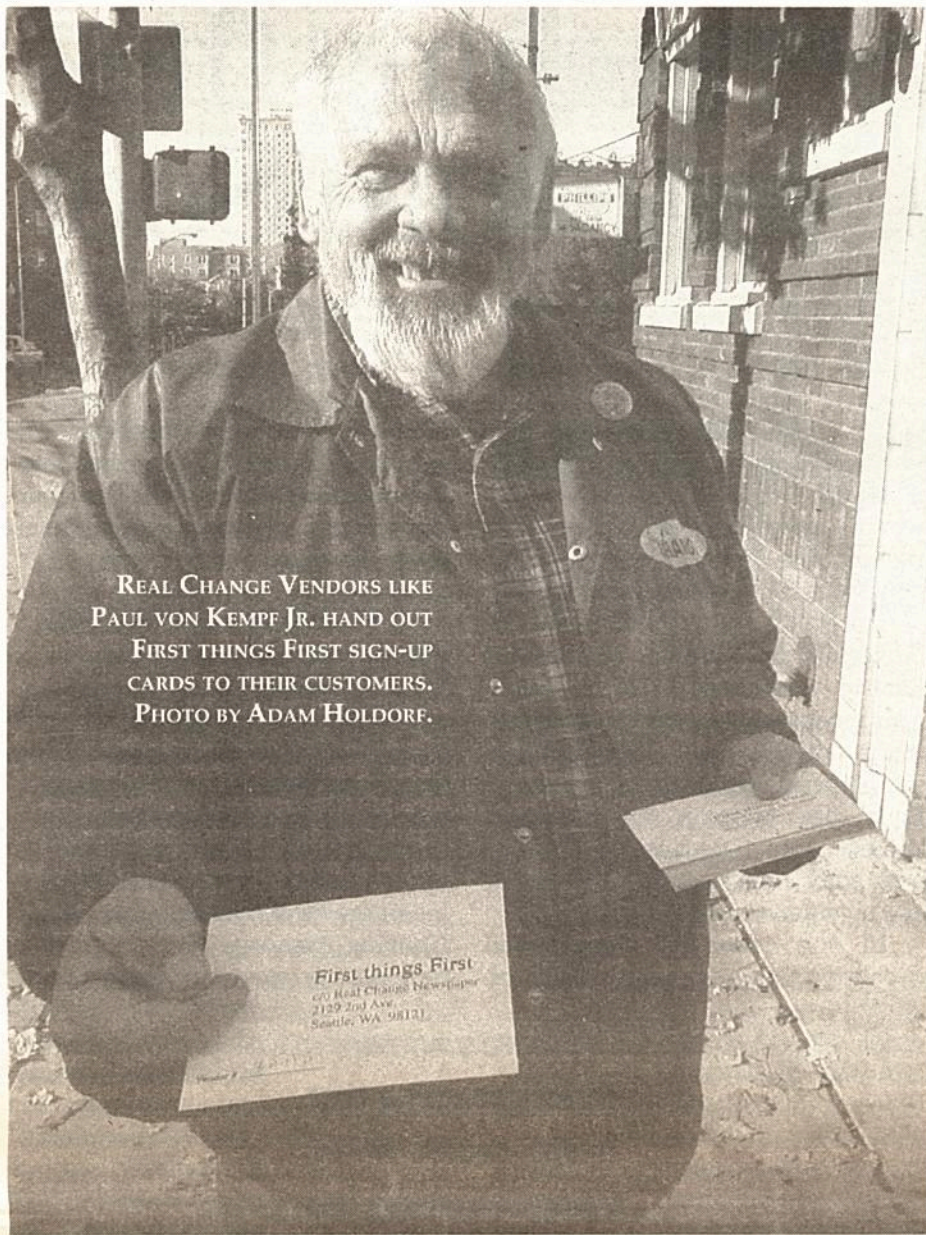 PHILLIPS
REAL CHANGE VENDORS LIKE
PAUL VON KEMPF JR. HAND OUT
FIRST THINGS FIRST SIGN-UP
CARDS TO THEIR CUSTOMERS.
PHOTO BY ADAM HOLDORF.
First things First
c/o Real Change Newspaper
2129 2nd Ave.
Seattle, WA 98121
Vendor #